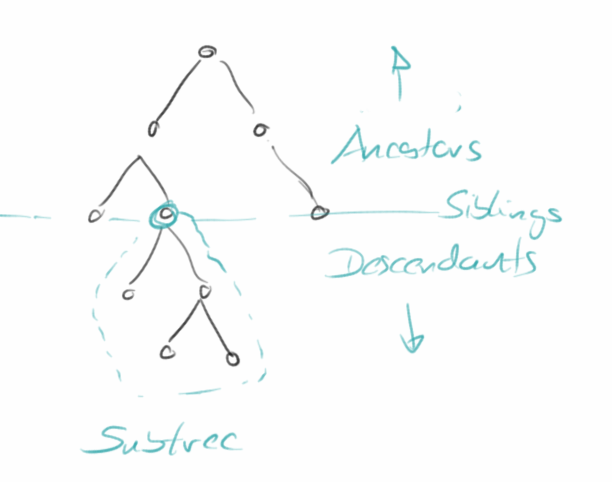 Ancestors
Siblings
Descendants
Subtree